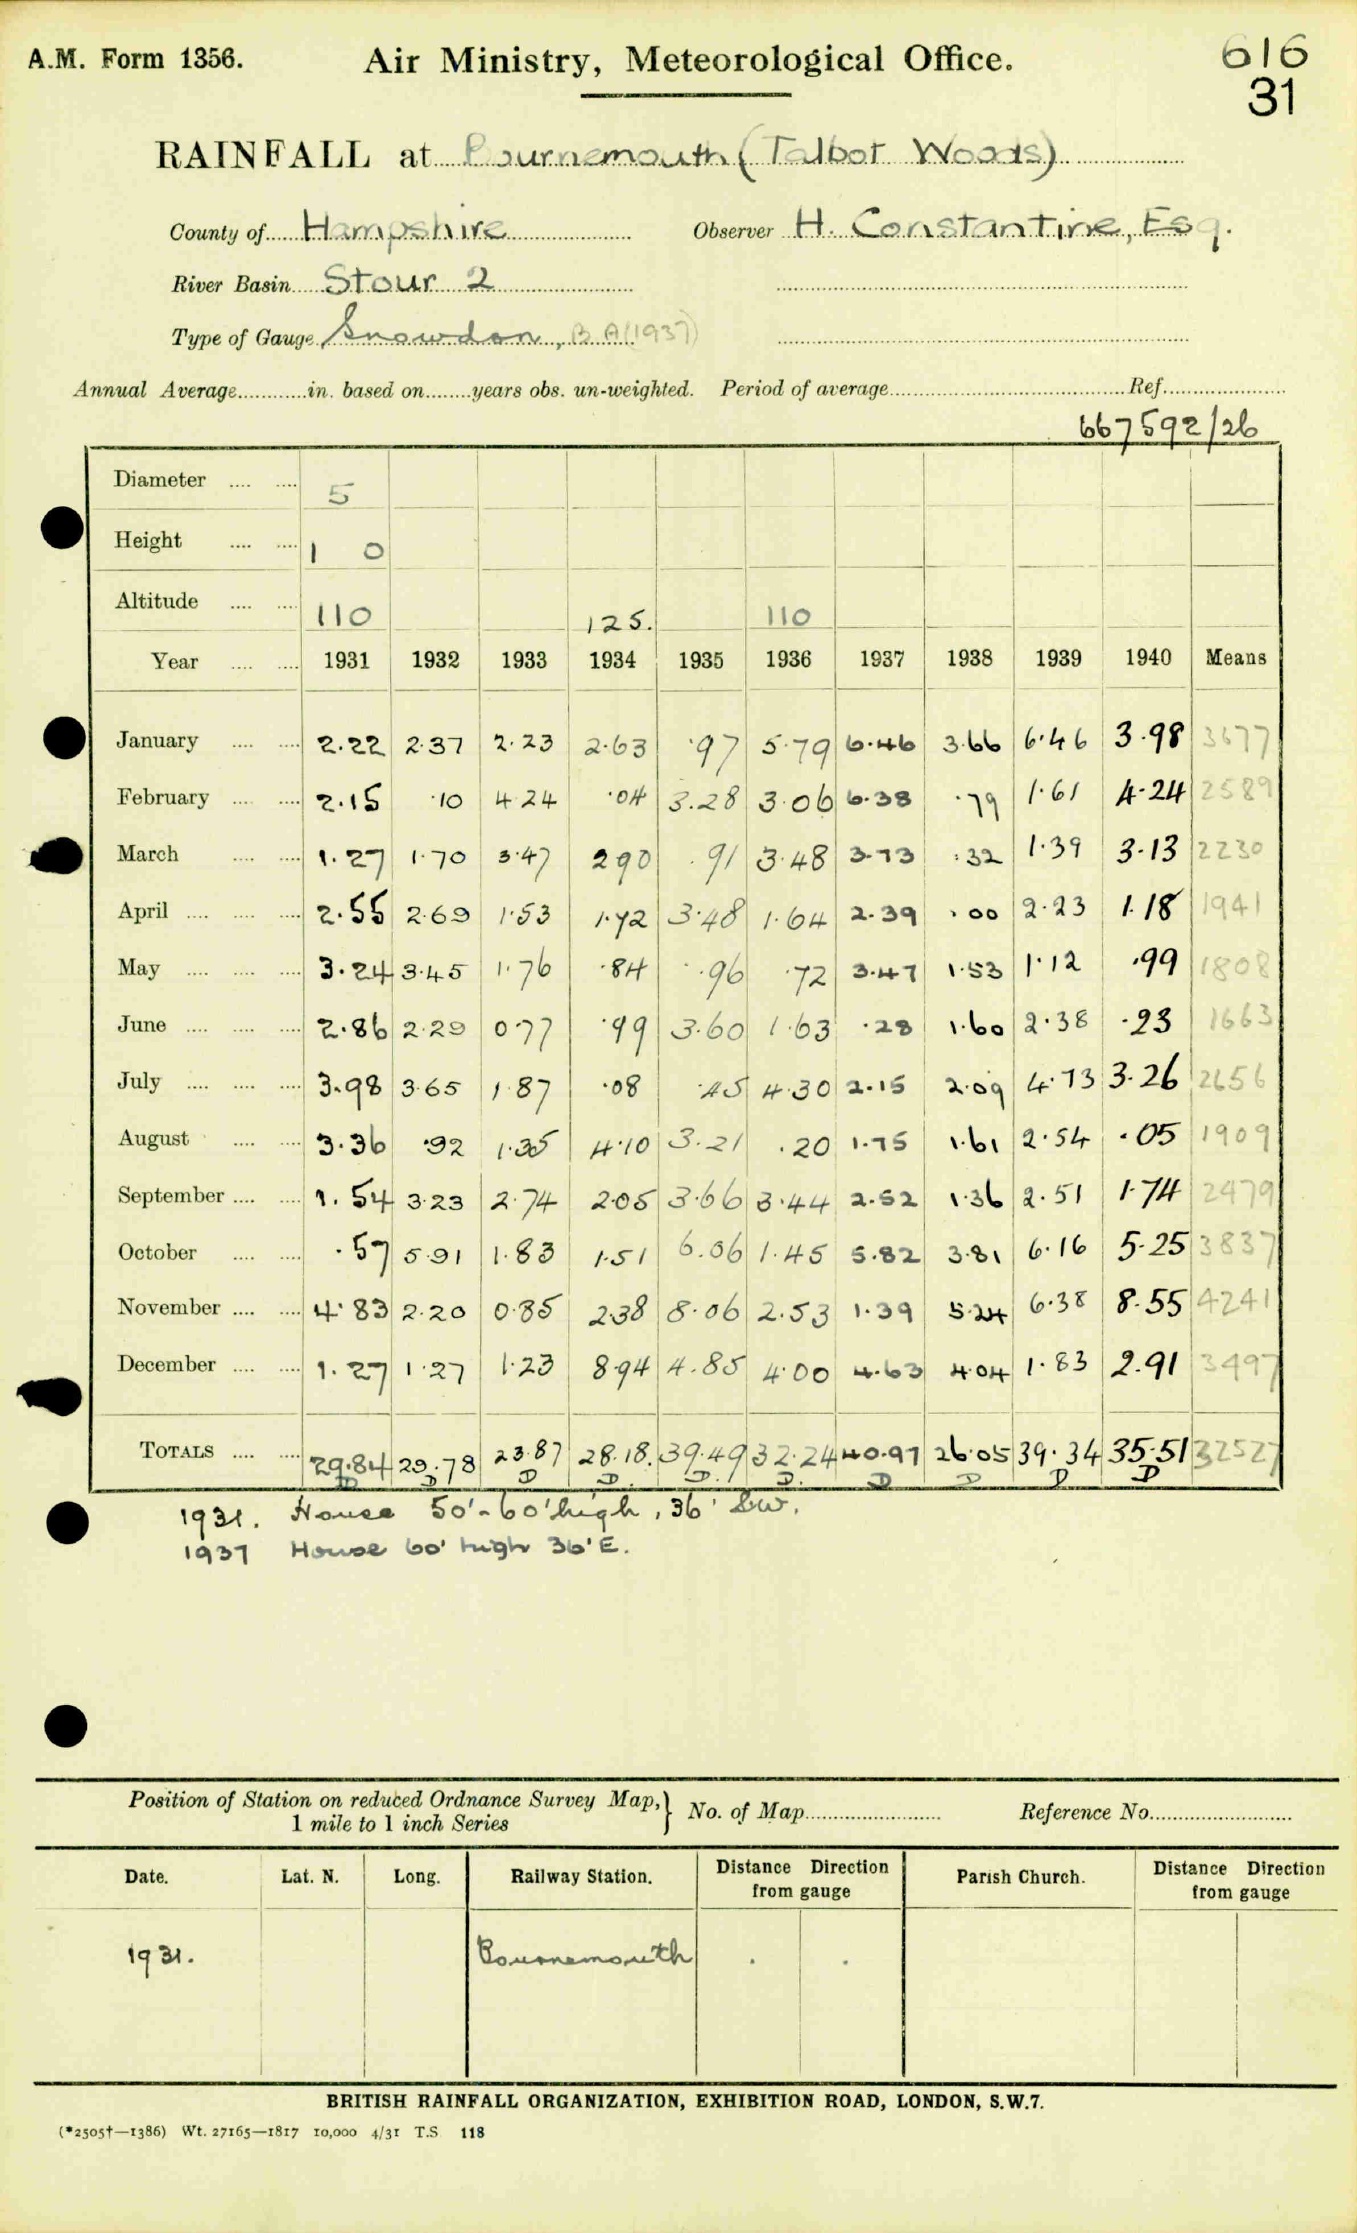 A.M. Form 1356.
Air Ministry, Meteorological Office.
616
31
RAINFALL at Bournemouth (Talbot Woods)
County of Hampshire Observer H. Constantine, Esq.
River Basin Stour 2
Type of Gauge Snowdon, B.A (1937)
Annual Average in. based on years obs. un-weighted. Period of average Ref.
667592/26
Diameter 5
Height 1 0
Altitude 110 125. 110
Year 1931 1932 1933 1934 1935 1936 1937 1938 1939 1940 Means
January 2.22 2.37 2.23 2.63 .97 5.79 6.46 3.66 6.46 3.98 3677
February 2.15 .10 4.24 .04 3.28 3.06 6.38 .79 1.61 4.24 2589
March 1.27 1.70 3.47 2.90 .91 3.48 3.73 .32 1.39 3.13 2230
April 2.55 2.69 1.53 1.72 3.48 1.64 2.39 .00 2.23 1.18 1941
May 3.24 3.45 1.76 .84 .96 .72 3.47 1.53 1.12 .99 1808
June 2.86 2.29 0.77 .99 3.60 1.63 .28 1.60 2.38 .23 1663
July 3.98 3.65 1.87 .08 .45 4.30 2.15 2.09 4.73 3.26 2656
August 3.36 .92 1.35 4.10 3.21 .20 1.75 1.61 2.54 .05 1909
September 1.54 3.23 2.74 2.05 3.66 3.44 2.52 1.36 2.51 1.74 2479
October .57 5.91 1.83 1.51 6.06 1.45 5.82 3.81 6.16 5.25 3837
November 4.83 2.20 0.85 2.38 8.06 2.53 1.39 5.24 6.38 8.55 4241
December 1.27 1.27 1.23 8.94 4.85 4.00 4.63 4.04 1.83 2.91 3497
TOTALS 29.84 29.78 23.87 28.18. 39.49 32.24 40.97 26.05 39.34 35.51 32527
D D D D. D. D. D D D D
1931. House 50'-60' high, 36' SW.
1937 House 60' high 36' E.
Position of Station on reduced Ordnance Survey Map, } No. of Map Reference No.
1 mile to 1 inch Series
Date. Lat. N. Long. Railway Station. Distance Direction from gauge Parish Church. Distance Direction from gauge
1931. Bournemouth . .
BRITISH RAINFALL ORGANIZATION, EXHIBITION ROAD, LONDON, S.W.7.
(*2505†—1386) Wt. 27165—1817 10,000 4/31 T.S. 118